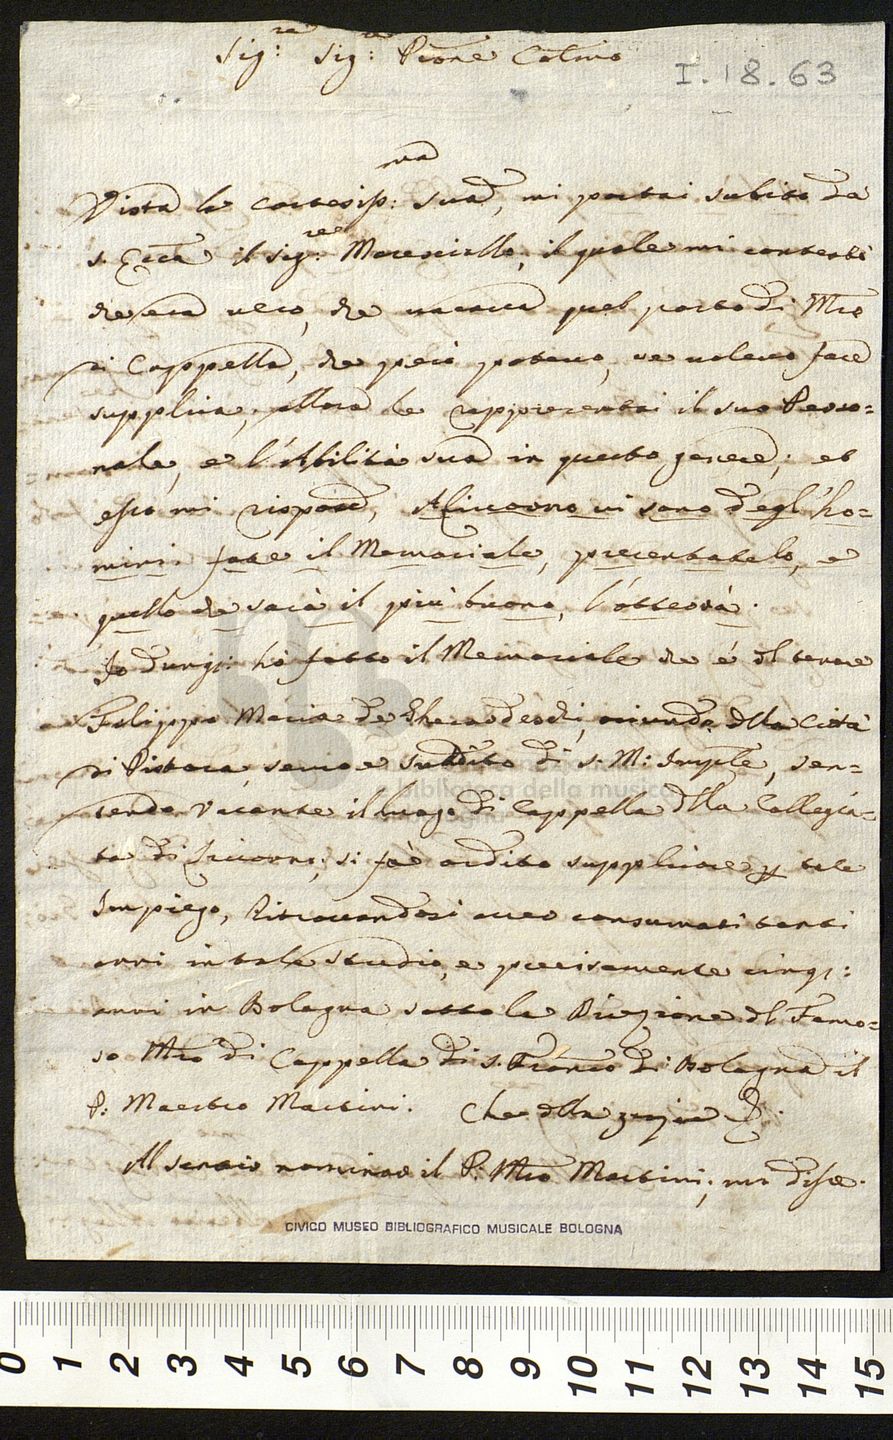 Sig:re Sig:re Pr̃one Colmo
I. 18. 63
Vista la cortesiss:ma sua, mi portai subito da
S. Ecc̃a il Sig:re Maresciallo, il quale mi contestò
che era vero, che vacava quel posto di Mr̃o
di Cappella, che però potevo, se volevo fare
supplica; allora le rappresentai il suo Perso=
nale, e l'Abilità sua in questo genere; et
esso mi rispose, A Livorno vi sono degl'ho=
mini. fate il Memoriale, presentatelo, e
quello che sarà il più buono, l'otterrà.
Io dunq: hò fatto il Memoriale che è del tenore
Filippo Maria de Gherardeschi, oriundo della Città
di Pistoia, servo e suddito di S. M: Imp̃le, sen=
tendo Vacante il luogo di Cappella della Collegia=
ta di Livorno; si fà ardito supplicare p tale
Impiego, Ritrovandosi aver consumati tanti
anni in tale studio, e precisamente cinq:
anni in Bologna sotto la Direzione del Famo=
so Mr̃o di Cappella di S. Franc̃o di Bologna il
P: Maestro Martini. Che della grazia &.
Al sentir nominare il P: Mr̃o Martini, mi disse.
CIVICO MUSEO BIBLIOGRAFICO MUSICALE BOLOGNA
e biblioteca della musica
0 1 2 3 4 5 6 7 8 9 10 11 12 13 14 15